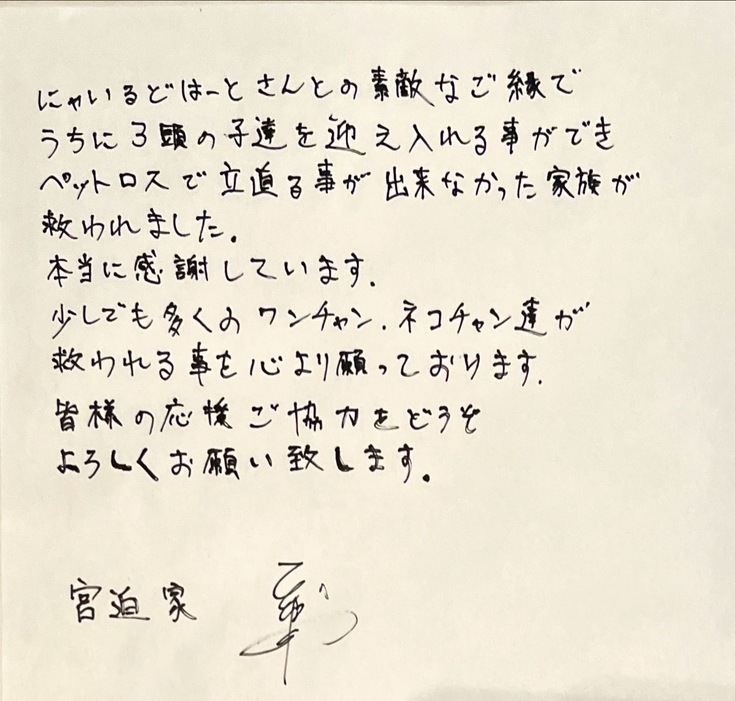 にゃいるどはーとさんとの素敵なご縁で
うちに3頭の子達を迎え入れる事ができ
ペットロスで立迫る事が出来なかった家族が
救われました.
本当に感謝しています.
少しでも多くのワンチャン.ネコチャン達が
救われる事を心より願っております.
皆様の応援ご協力をどうぞ
よろしくお願い致します.
宮迫家